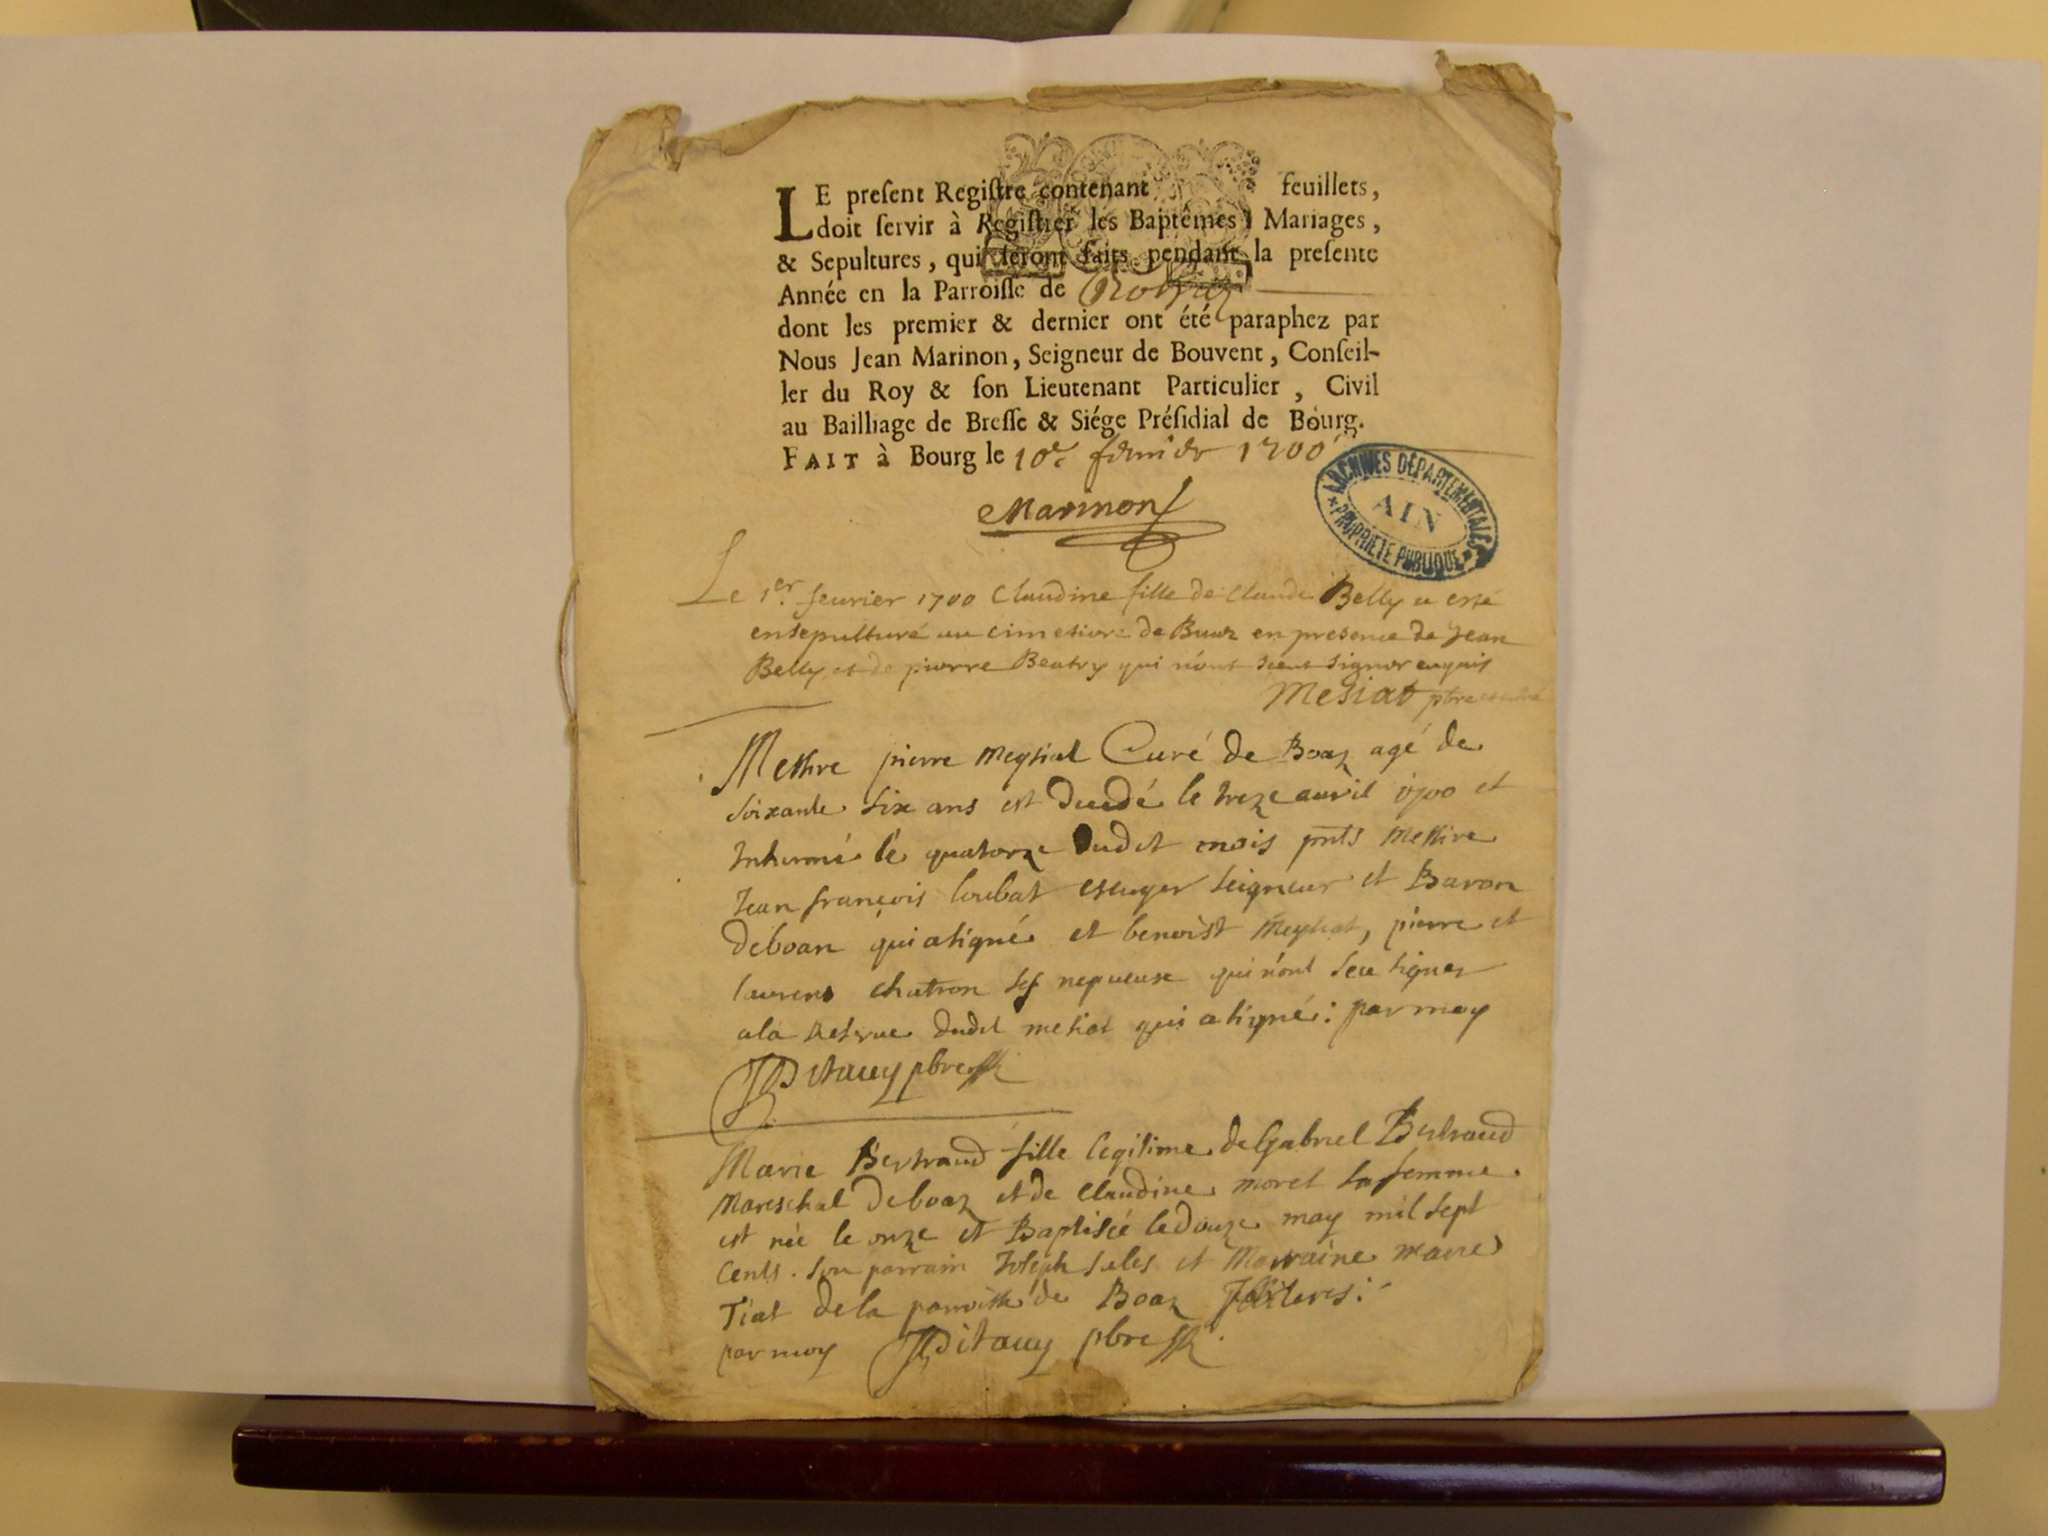 LE preſent Regiſtre contenant feuillets,
doit ſervir à Regiſtrer les Baptêmes, Mariages,
& Sepultures, qui ſeront faits pendant la preſente
Année en la Parroiſſe de
dont les premier & dernier ont été paraphez par
Nous Jean Marinon, Seigneur de Bouvent, Conſeil-
ler du Roy & ſon Lieutenant Particulier, Civil
au Bailliage de Breſſe & Siége Préſidial de Bourg.
FAIT à Bourg le 10e feurier 1700
Marinon
ARCHIVES DÉPARTEMENTALES
AIN
PROPRIÉTÉ PUBLIQUE
Le 1er. feurier 1700 Claudine fille de Claude Belly a esté
ensepulturé au cimetiere de Buaz en presence de Jean
Belly et de pierre Beatry qui n'ont sceut signer enquis
Mesiat ptre
Messire pierre Meysiat Curé de Boaz agé de
soixante six ans est decedé le treze auvril 1700 et
Inhumé le quatorze dudit mois pnts Messire
Jean françois loubat escuyer seigneur et Baron
deboaz qui asigné et benoist Meysiat, pierre et
laurens chatron ses nepueux qui n'ont sceu signer
ala reserue dudit mesiat qui asigné: par moy
Ditauy pbre
Marie Bertraud fille legitime de Gabriel Bertraud
Mareschal deboaz et de Claudine moret sa femme
est née le onze et Baptisée ledouze may mil sept
Cents. son parrain Joseph sales et Marraine marie
Tiat dela parroisse de Boaz Jlliteres:
par moy Ditauy pbre